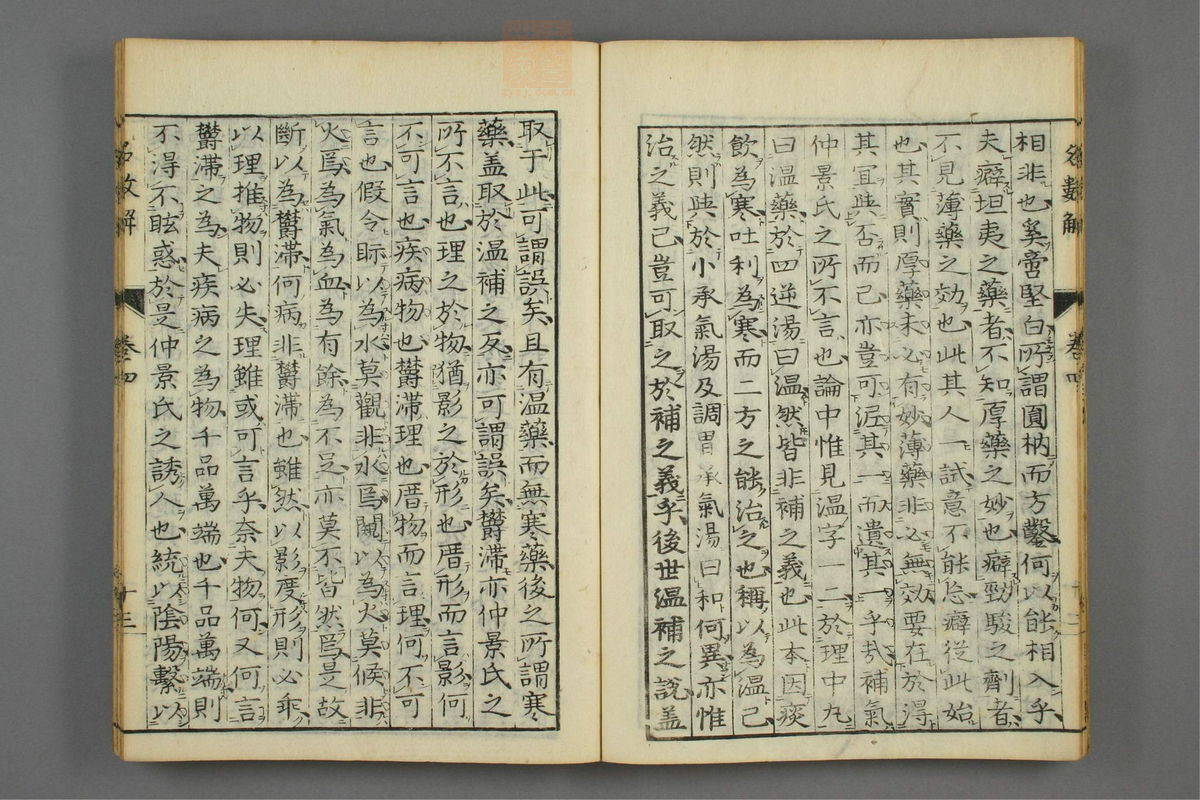 相非也奚啻堅白所謂圓枘而方鑿何以能相入乎
夫癖坦夷之藥者不知厚藥之妙也癖勁駿之劑者
不見薄藥之効也此其人一試意不能忘癖從此始
也其實則厚藥未必有妙薄藥非必無効要在於得
其宜與否而已亦豈可泥其一而遺其一乎哉補氣
仲景氏之所不言也論中惟見溫字一二於理中丸
曰溫藥於四逆湯曰溫然皆非補之義也此本因痰
飲為寒吐利為寒而二方之能治之也稱以為溫已
然則與於小承氣湯及調胃承氣湯曰和何異亦惟
治之義已豈可取之於補之義乎後世溫補之說蓋
名數解
卷四
取于此可謂誤矣且有溫藥而無寒藥後之所謂寒
藥盖取於溫補之反亦可謂誤矣鬱滯亦仲景氏之
所不言也理之於物猶影之於形也厝形而言影何
不可言也疾病物也鬱滯理也厝物而言理何不可
言也假令眎以為水莫觀非水焉闚以為火莫候非
火焉為氣為血為有餘為不足亦莫不皆然焉是故
斷以為鬱滯何病非鬱滯也雖然以影度形則必乖
以理推物則必失理雖或可言乎奈夫物何又何言
鬱滯之為夫疾病之為物千品萬端也千品萬端則
不得不眩惑於是仲景氏之誘人也統以陰陽繫以
名数解
卷四
十三